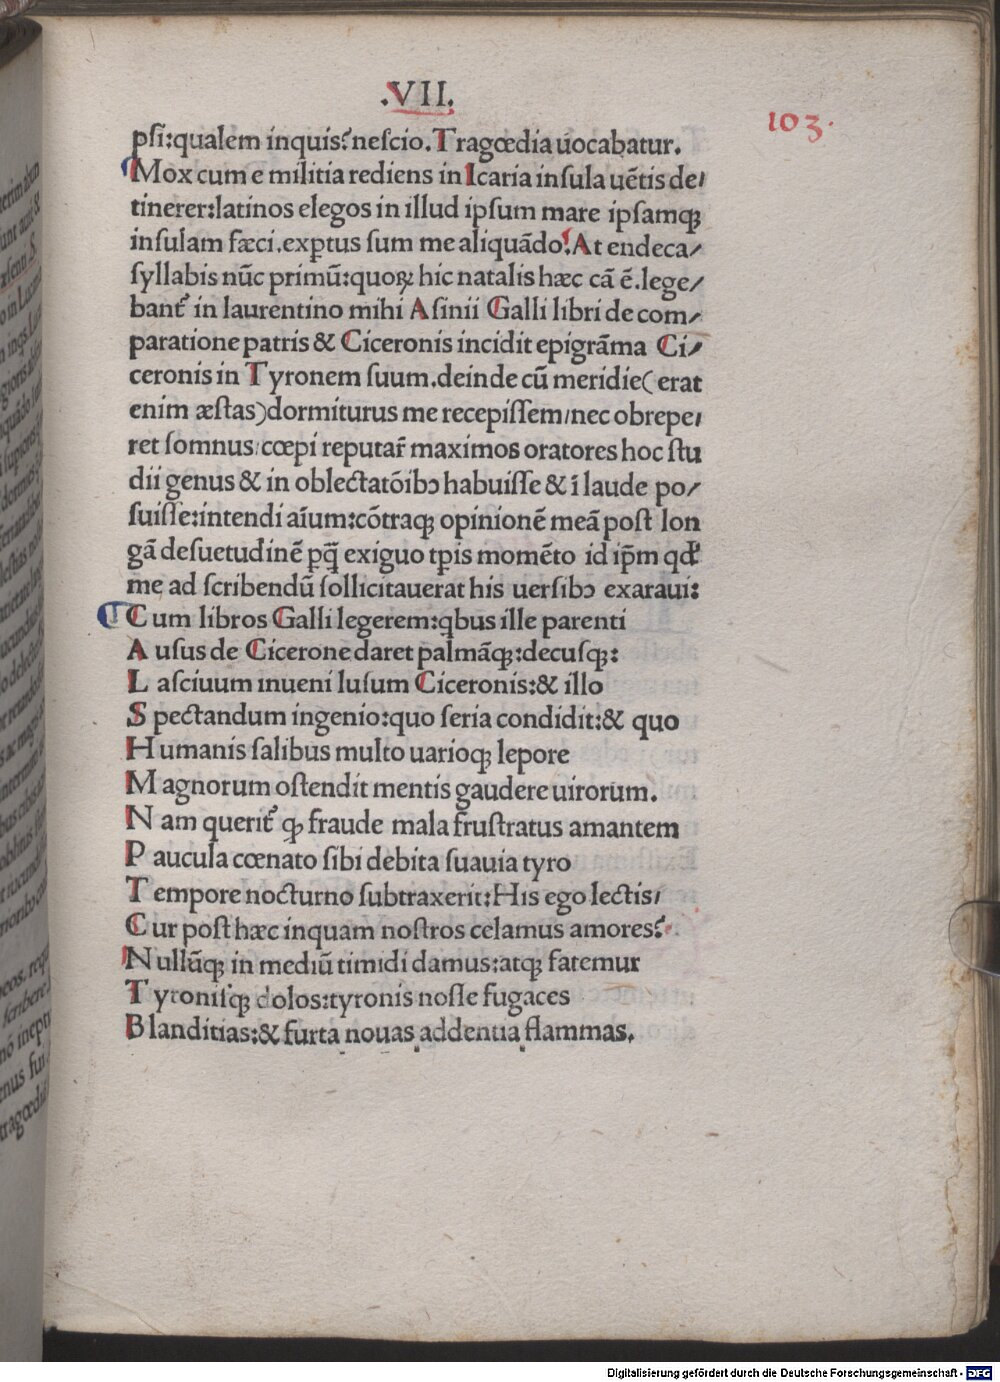 .VII.
103.
psi:qualem inquis?nescio.Tragœdia uocabatur.
Mox cum e militia rediens in Icaria insula uẽtis de/
tinerer:latinos elegos in illud ipsum mare ipsamqꝫ
insulam fæci.exꝑtus sum me aliquãdo.At endeca/
syllabis nũc primũ:quoꝝ hic natalis hæc cã ẽ.lege/
bant᷑ in laurentino mihi Asinii Galli libri de com/
paratione patris & Ciceronis incidit epigrãma Ci/
ceronis in Tyronem suum.deinde cũ meridie(erat
enim æstas)dormiturus me recepissem/nec obrepe/
ret somnus:cœpi reputar̃ maximos oratores hoc stu
dii genus & in oblectatõibꝰ habuisse & ĩ laude po/
suisse:intendi aĩum:cõtraqꝫ opinionẽ meã post lon
gã desuetudinẽ ꝑq̃ exiguo tꝑis momẽto id ip̃m qd̃
me ad scribendũ sollicitauerat his uersibꝰ exaraui:
Cum libros Galli legerem:qbus ille parenti
Ausus de Cicerone daret palmãqꝫ:decusqꝫ:
Lasciuum inueni lusum Ciceronis:& illo
Spectandum ingenio:quo seria condidit:& quo
Humanis salibus multo uarioqꝫ lepore
Magnorum ostendit mentis gaudere uirorum.
Nam querit᷑ qꝫ fraude mala fr̃ustratus amantem
Paucula cœnato sibi debita suauia tyro
Tempore nocturno subtraxerit:His ego lectis/
Cur post hæc inquam nostros celamus amores?
Nullũqꝫ in mediũ timidi damus:atqꝫ fatemur
Tyronisqꝫ dolos:tyronis nosse fugaces
Blanditias:& furta nouas addentia flammas.
Digitalisierung gefördert durch die Deutsche Forschungsgemeinschaft - DFG